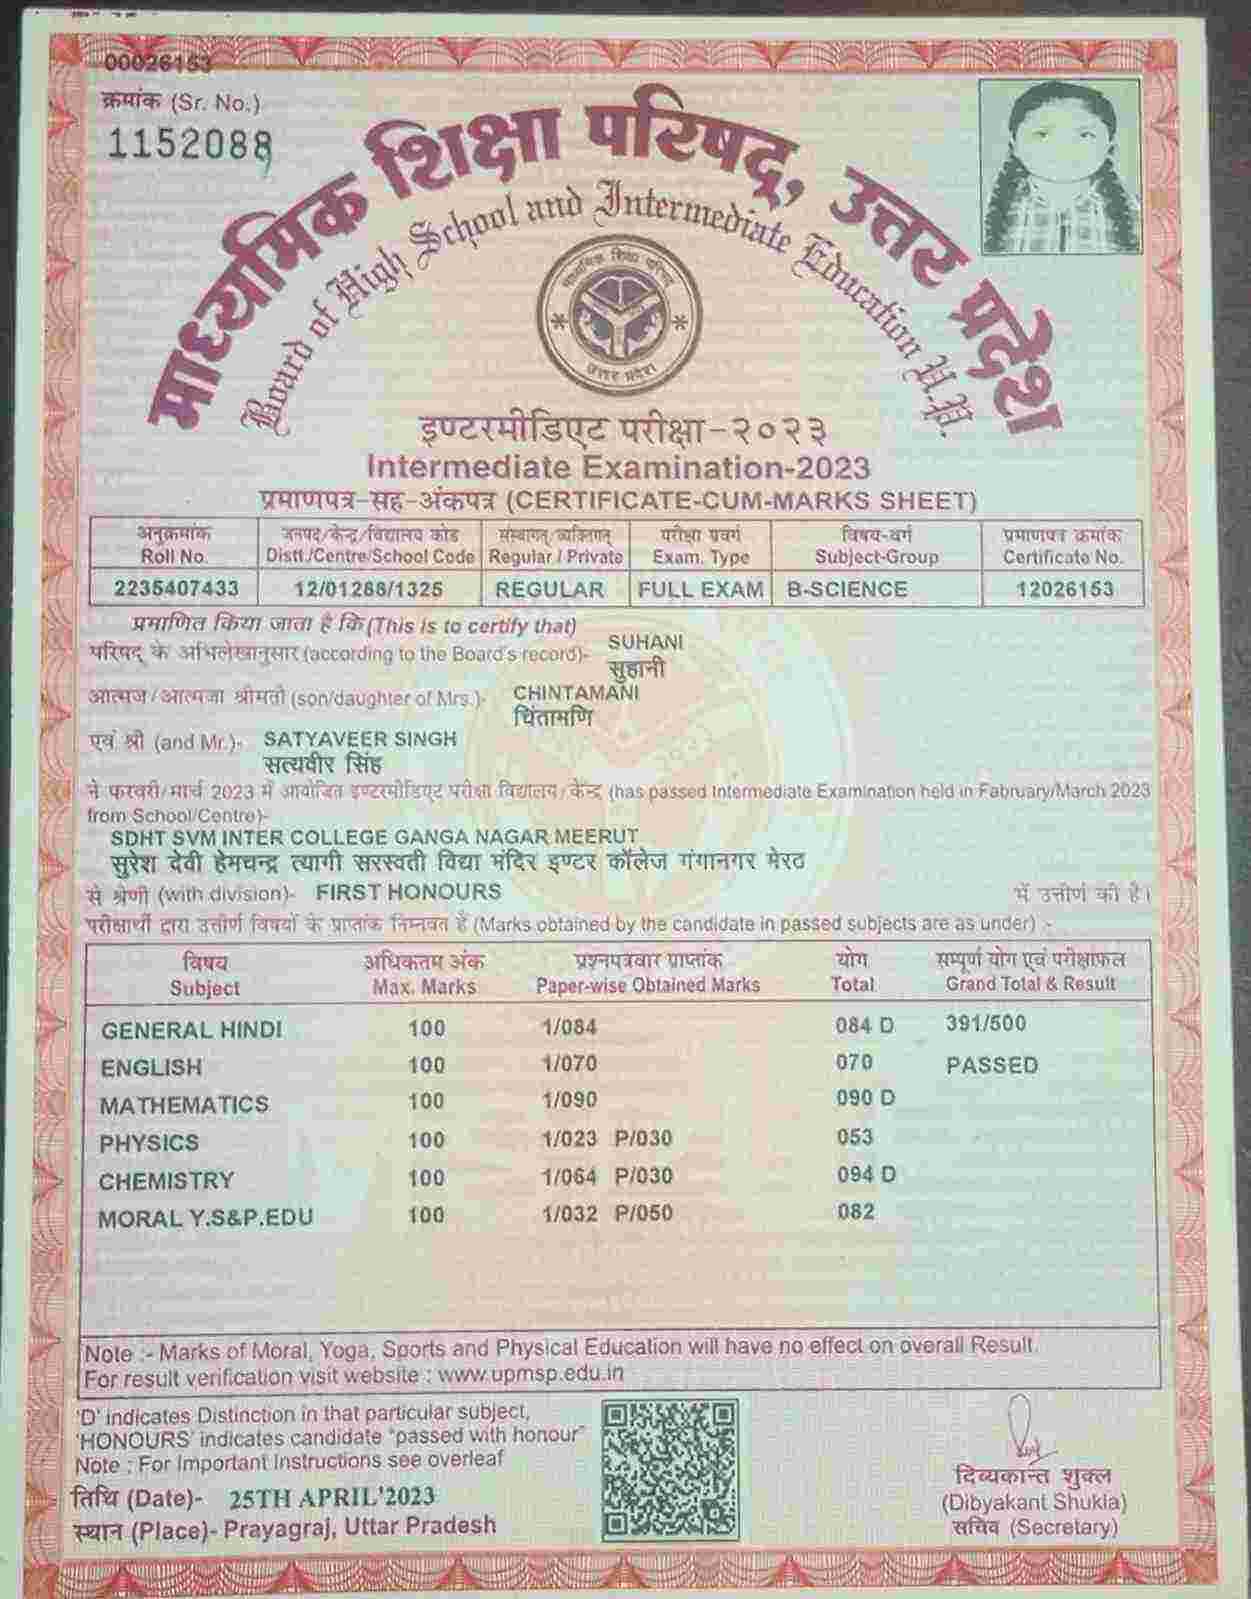 00026153
क्रमांक (Sr. No.)
1152088
माध्यमिक शिक्षा परिषद्, उत्तर प्रदेश
Board of High School and Intermediate Education U.P.
माध्यमिक शिक्षा परिषद्
उत्तर प्रदेश
इण्टरमीडिएट परीक्षा-२०२३
Intermediate Examination-2023
प्रमाणपत्र-सह-अंकपत्र (CERTIFICATE-CUM-MARKS SHEET)
अनुक्रमांक जनपद/केन्द्र/विद्यालय कोड संस्थागत/व्यक्तिगत् परीक्षा प्रवर्ग विषय-वर्ग प्रमाणपत्र क्रमांक
Roll No. Distt./Centre/School Code Regular / Private Exam. Type Subject-Group Certificate No.
2235407433 12/01288/1325 REGULAR FULL EXAM B-SCIENCE 12026153
प्रमाणित किया जाता है कि (This is to certify that)
परिषद् के अभिलेखानुसार (according to the Board's record)- SUHANI
सुहानी
आत्मज/आत्मजा श्रीमती (son/daughter of Mrs.)- CHINTAMANI
चिंतामणि
एवं श्री (and Mr.)- SATYAVEER SINGH
सत्यवीर सिंह
ने फरवरी/मार्च 2023 में आयोजित इण्टरमीडिएट परीक्षा विद्यालय/केन्द्र (has passed Intermediate Examination held in Fabruary/March 2023
from School/Centre)-
SDHT SVM INTER COLLEGE GANGA NAGAR MEERUT
सुरेश देवी हेमचन्द्र त्यागी सरस्वती विद्या मंदिर इण्टर कॉलेज गंगानगर मेरठ
से श्रेणी (with division)- FIRST HONOURS में उत्तीर्ण की है।
परीक्षार्थी द्वारा उत्तीर्ण विषयों के प्राप्तांक निम्नवत है (Marks obtained by the candidate in passed subjects are as under) :-
विषय अधिकतम अंक प्रश्नपत्रवार प्राप्तांक योग सम्पूर्ण योग एवं परीक्षाफल
Subject Max. Marks Paper-wise Obtained Marks Total Grand Total & Result
GENERAL HINDI 100 1/084 084 D 391/500
ENGLISH 100 1/070 070 PASSED
MATHEMATICS 100 1/090 090 D
PHYSICS 100 1/023 P/030 053
CHEMISTRY 100 1/064 P/030 094 D
MORAL Y.S&P.EDU 100 1/032 P/050 082
Note :- Marks of Moral, Yoga, Sports and Physical Education will have no effect on overall Result.
For result verification visit website : www.upmsp.edu.in
'D' indicates Distinction in that particular subject,
'HONOURS' indicates candidate "passed with honour"
Note : For Important Instructions see overleaf
तिथि (Date)- 25TH APRIL'2023
स्थान (Place)- Prayagraj, Uttar Pradesh
दिव्यकान्त शुक्ल
(Dibyakant Shukla)
सचिव (Secretary)